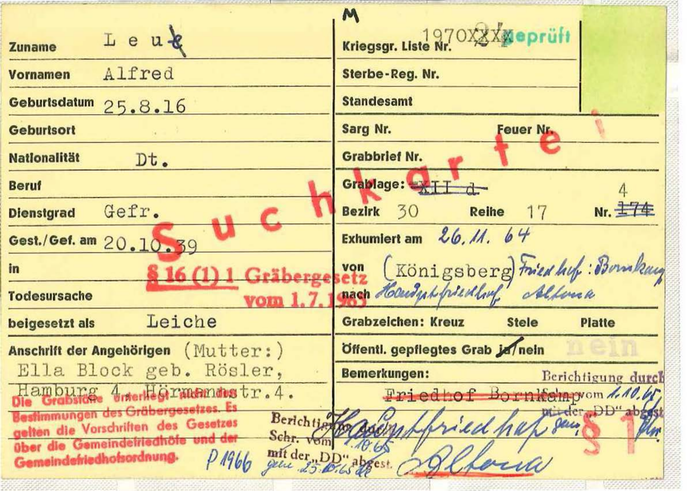 M
Zuname Leue
Vornamen Alfred
Geburtsdatum 25.8.16
Geburtsort
Nationalität Dt.
Beruf
Dienstgrad Gefr.
Gest./Gef. am 20.10.39
in
Todesursache
beigesetzt als Leiche
Anschrift der Angehörigen (Mutter:)
Ella Block geb. Rösler,
Hamburg 4, Hörmannstr.4.
Die Grabstätte unterliegt nicht den
Bestimmungen des Gräbergesetzes. Es
gelten die Vorschriften des Gesetzes
über die Gemeindefriedhöfe und der
Gemeindefriedhofsordnung.
P 1966
Suchkartei
§ 16 (1) 1 Gräbergesetz
vom 1.7.1965
Kriegsgr. Liste Nr. 1970XXXX 24 geprüft
Sterbe-Reg. Nr.
Standesamt
Sarg Nr. Feuer Nr.
Grabbrief Nr.
Grablage: XII d
Bezirk 30 Reihe 17 Nr. 174 4
Exhumiert am 26.11.64
von (Königsberg) Friedhof: Bornkamp
nach Hauptfriedhof Altona
Grabzeichen: Kreuz Stele Platte
Öffentl. gepflegtes Grab ja/nein nein
Bemerkungen: Berichtigung durch
Friedhof Bornkamp vom 1.10.65
mit der „DD" abgest.
Hauptfriedhof
Altona
§ 1
Berichtigung durch
Schr. vom .10.65
mit der „DD" abgest.